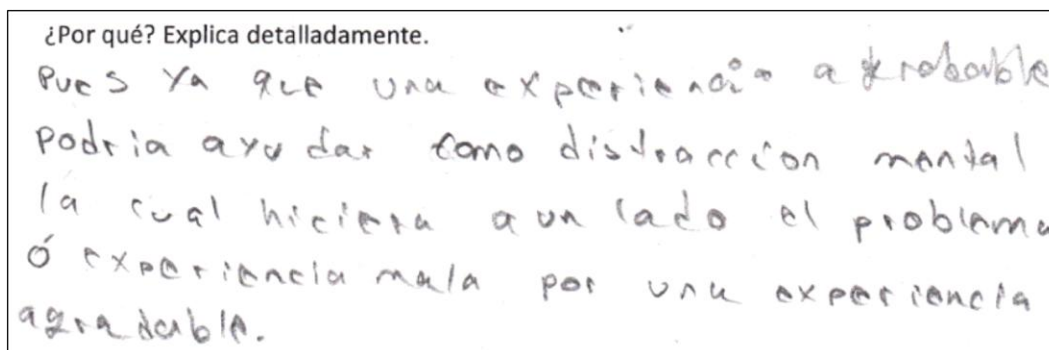 ¿Por qué? Explica detalladamente.
Pues ya que una experiencia agradable
podria ayudar como distraccion mental
la cual hiciera a un lado el problema
ó experiencia mala por una experiencia
agradable.